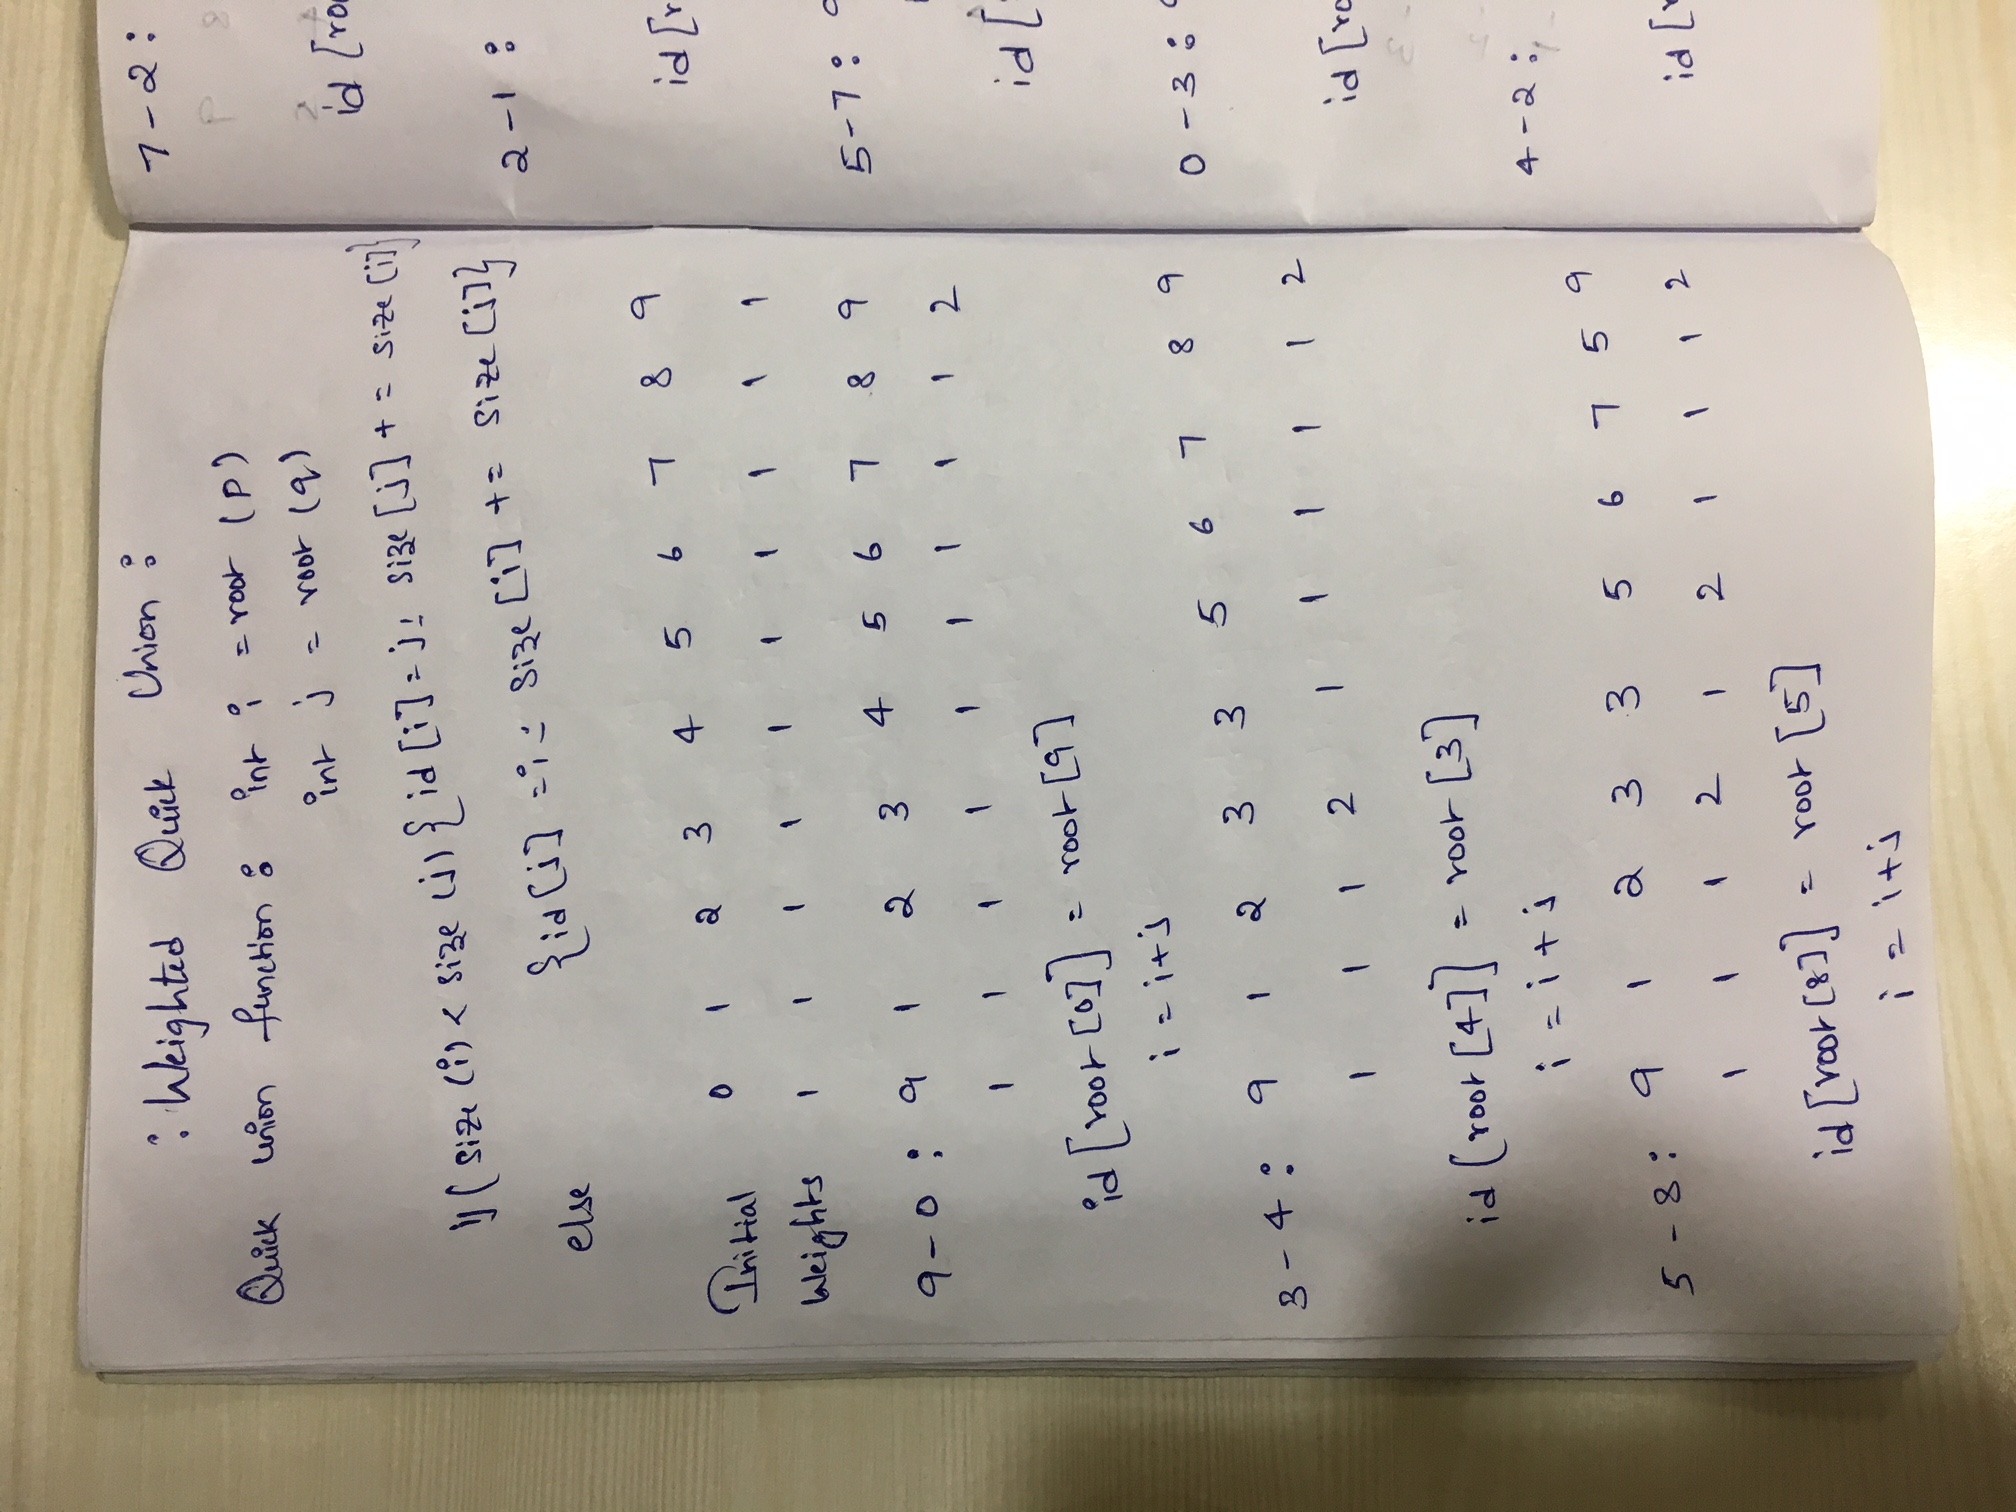 : Weighted Quick Union :
Quick union function : int i = root (p)
int j = root (q)
if ( size (i) < size (j) { id [i] = j; size [j] + = size [i] }
else { id [j] = i; size [i] += size [j] }
Initial 0 1 2 3 4 5 6 7 8 9
Weights 1 1 1 1 1 1 1 1 1 1
9-0 : 9 1 2 3 4 5 6 7 8 9
1 1 1 1 1 1 1 1 1 2
id [root [0]] = root [9]
i = i+j
3-4 : 9 1 2 3 3 5 6 7 8 9
1 1 1 2 1 1 1 1 1 2
id (root [4]] = root [3]
i = i + j
5-8 : 9 1 2 3 3 5 6 7 5 9
1 1 1 2 1 2 1 1 1 2
id [root [8]] = root [5]
i = i+j
7-2 :
id [ro
2-1 :
id [r
5-7 :
id [
0-3 :
id [ro
4-2 :
id [r